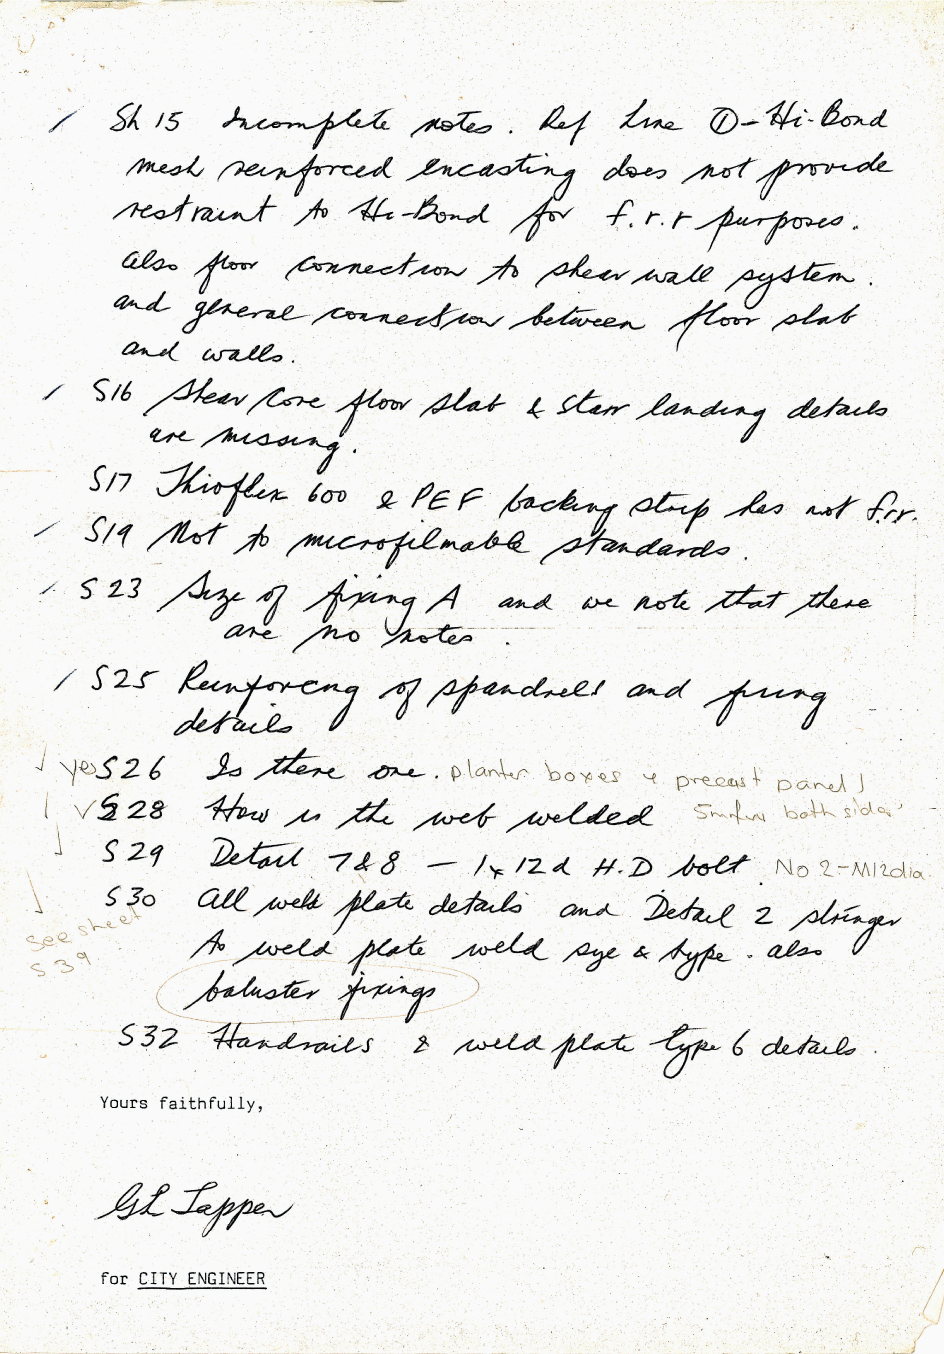 Sh 15 Incomplete notes. Ref Line ① - Hi-Bond
mesh reinforced encasting does not provide
restraint to Hi-Bond for f.r.r purposes.
also floor connection to shear wall system.
and general connection between floor slab
and walls.
S16 Shear Core floor slab & stair landing details
are missing.
S17 Thioflex 600 & PEF backing strip has not f.r.r.
S19 Not to microfilmable standards.
S23 Size of fixing A and we note that there
are no notes.
S25 Reinforcing of spandrels and fixing
details
yes S26 Is there one. planter boxes & precast panel
S28 How is the web welded 5mm fw both sides
S29 Detail 7 & 8 — 1x 12d H.D bolt. No 2-M12dia.
S30 All weld plate details and Detail 2 stringer
see sheet S39
to weld plate weld sye & type. also
baluster fixings
S32 Handrails & weld plate type 6 details.
Yours faithfully,
GL Tapper
for CITY ENGINEER